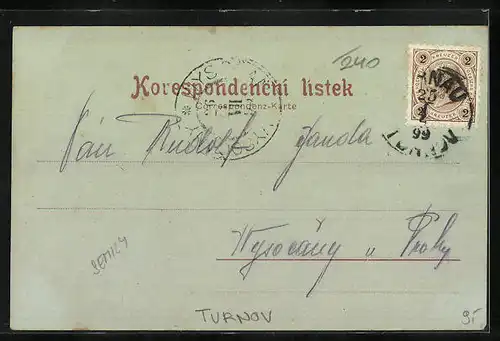 /240
Korespondenční lístek
Correspondenz-Karte
2 KREUZER 2
2 2
20
4
99
Pán Rudolf Janda
Wysočany u Prahy
SEMILY
TURNOV
95